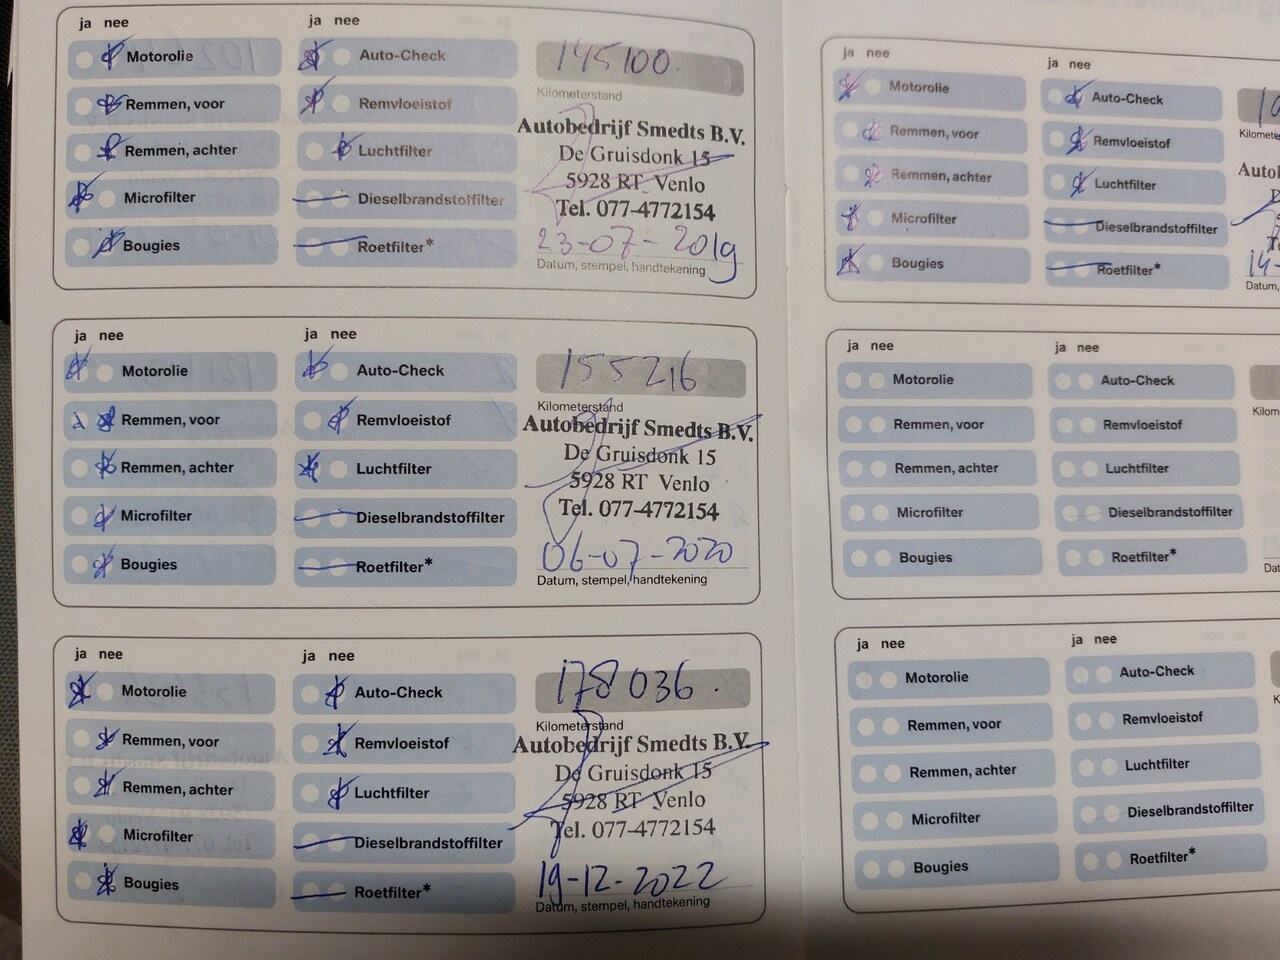 ja nee
ja nee
Motorolie
Auto-Check
145100
Remmen, voor
Remvloeistof
Kilometerstand
Autobedrijf Smedts B.V.
Remmen, achter
Luchtfilter
De Gruisdonk 15
Microfilter
Dieselbrandstoffilter
5928 RT Venlo
Tel. 077-4772154
Bougies
Roetfilter*
23-07-2019
Datum, stempel, handtekening
ja nee
ja nee
Motorolie
Auto-Check
155216
Kilometerstand
Remmen, voor
Remvloeistof
Autobedrijf Smedts B.V.
De Gruisdonk 15
Remmen, achter
Luchtfilter
5928 RT Venlo
Microfilter
Dieselbrandstoffilter
Tel. 077-4772154
Bougies
Roetfilter*
06-07-2020
Datum, stempel, handtekening
ja nee
ja nee
Motorolie
Auto-Check
178036.
Kilometerstand
Remmen, voor
Remvloeistof
Autobedrijf Smedts B.V.
De Gruisdonk 15
Remmen, achter
Luchtfilter
5928 RT Venlo
Microfilter
Dieselbrandstoffilter
Tel. 077-4772154
Bougies
Roetfilter*
19-12-2022
Datum, stempel, handtekening
ja nee
ja nee
Motorolie
Auto-Check
Remmen, voor
Remvloeistof
Remmen, achter
Luchtfilter
Microfilter
Dieselbrandstoffilter
Bougies
Roetfilter*
14-
Datum,
ja nee
ja nee
Motorolie
Auto-Check
Remmen, voor
Remvloeistof
Remmen, achter
Luchtfilter
Microfilter
Dieselbrandstoffilter
Bougies
Roetfilter*
ja nee
ja nee
Motorolie
Auto-Check
Remmen, voor
Remvloeistof
Remmen, achter
Luchtfilter
Microfilter
Dieselbrandstoffilter
Bougies
Roetfilter*